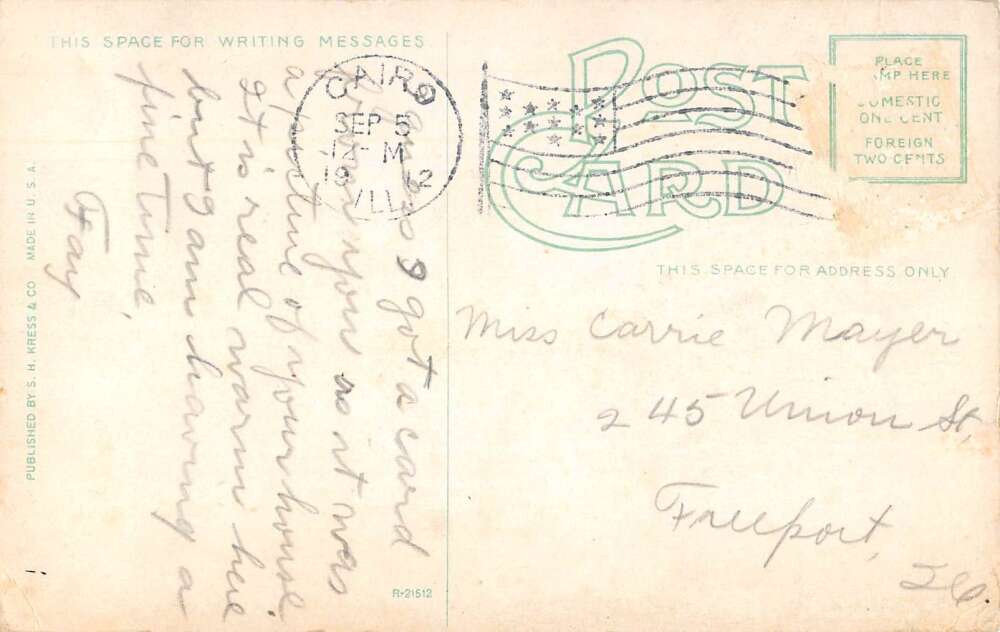 THIS SPACE FOR WRITING MESSAGES
I guess I got a card
from you as it was
a picture of your house.
It is real warm here
but I am having a
fine time.
Fay
PUBLISHED BY S. H. KRESS & CO. MADE IN U. S. A.
R-21512
CAIRO
SEP 5
M
ILL.
POST CARD
PLACE
HERE
DOMESTIC
ONE CENT
FOREIGN
TWO CENTS
THIS SPACE FOR ADDRESS ONLY
Miss Carrie Mayer
245 Union St.
Freeport,
Ill.